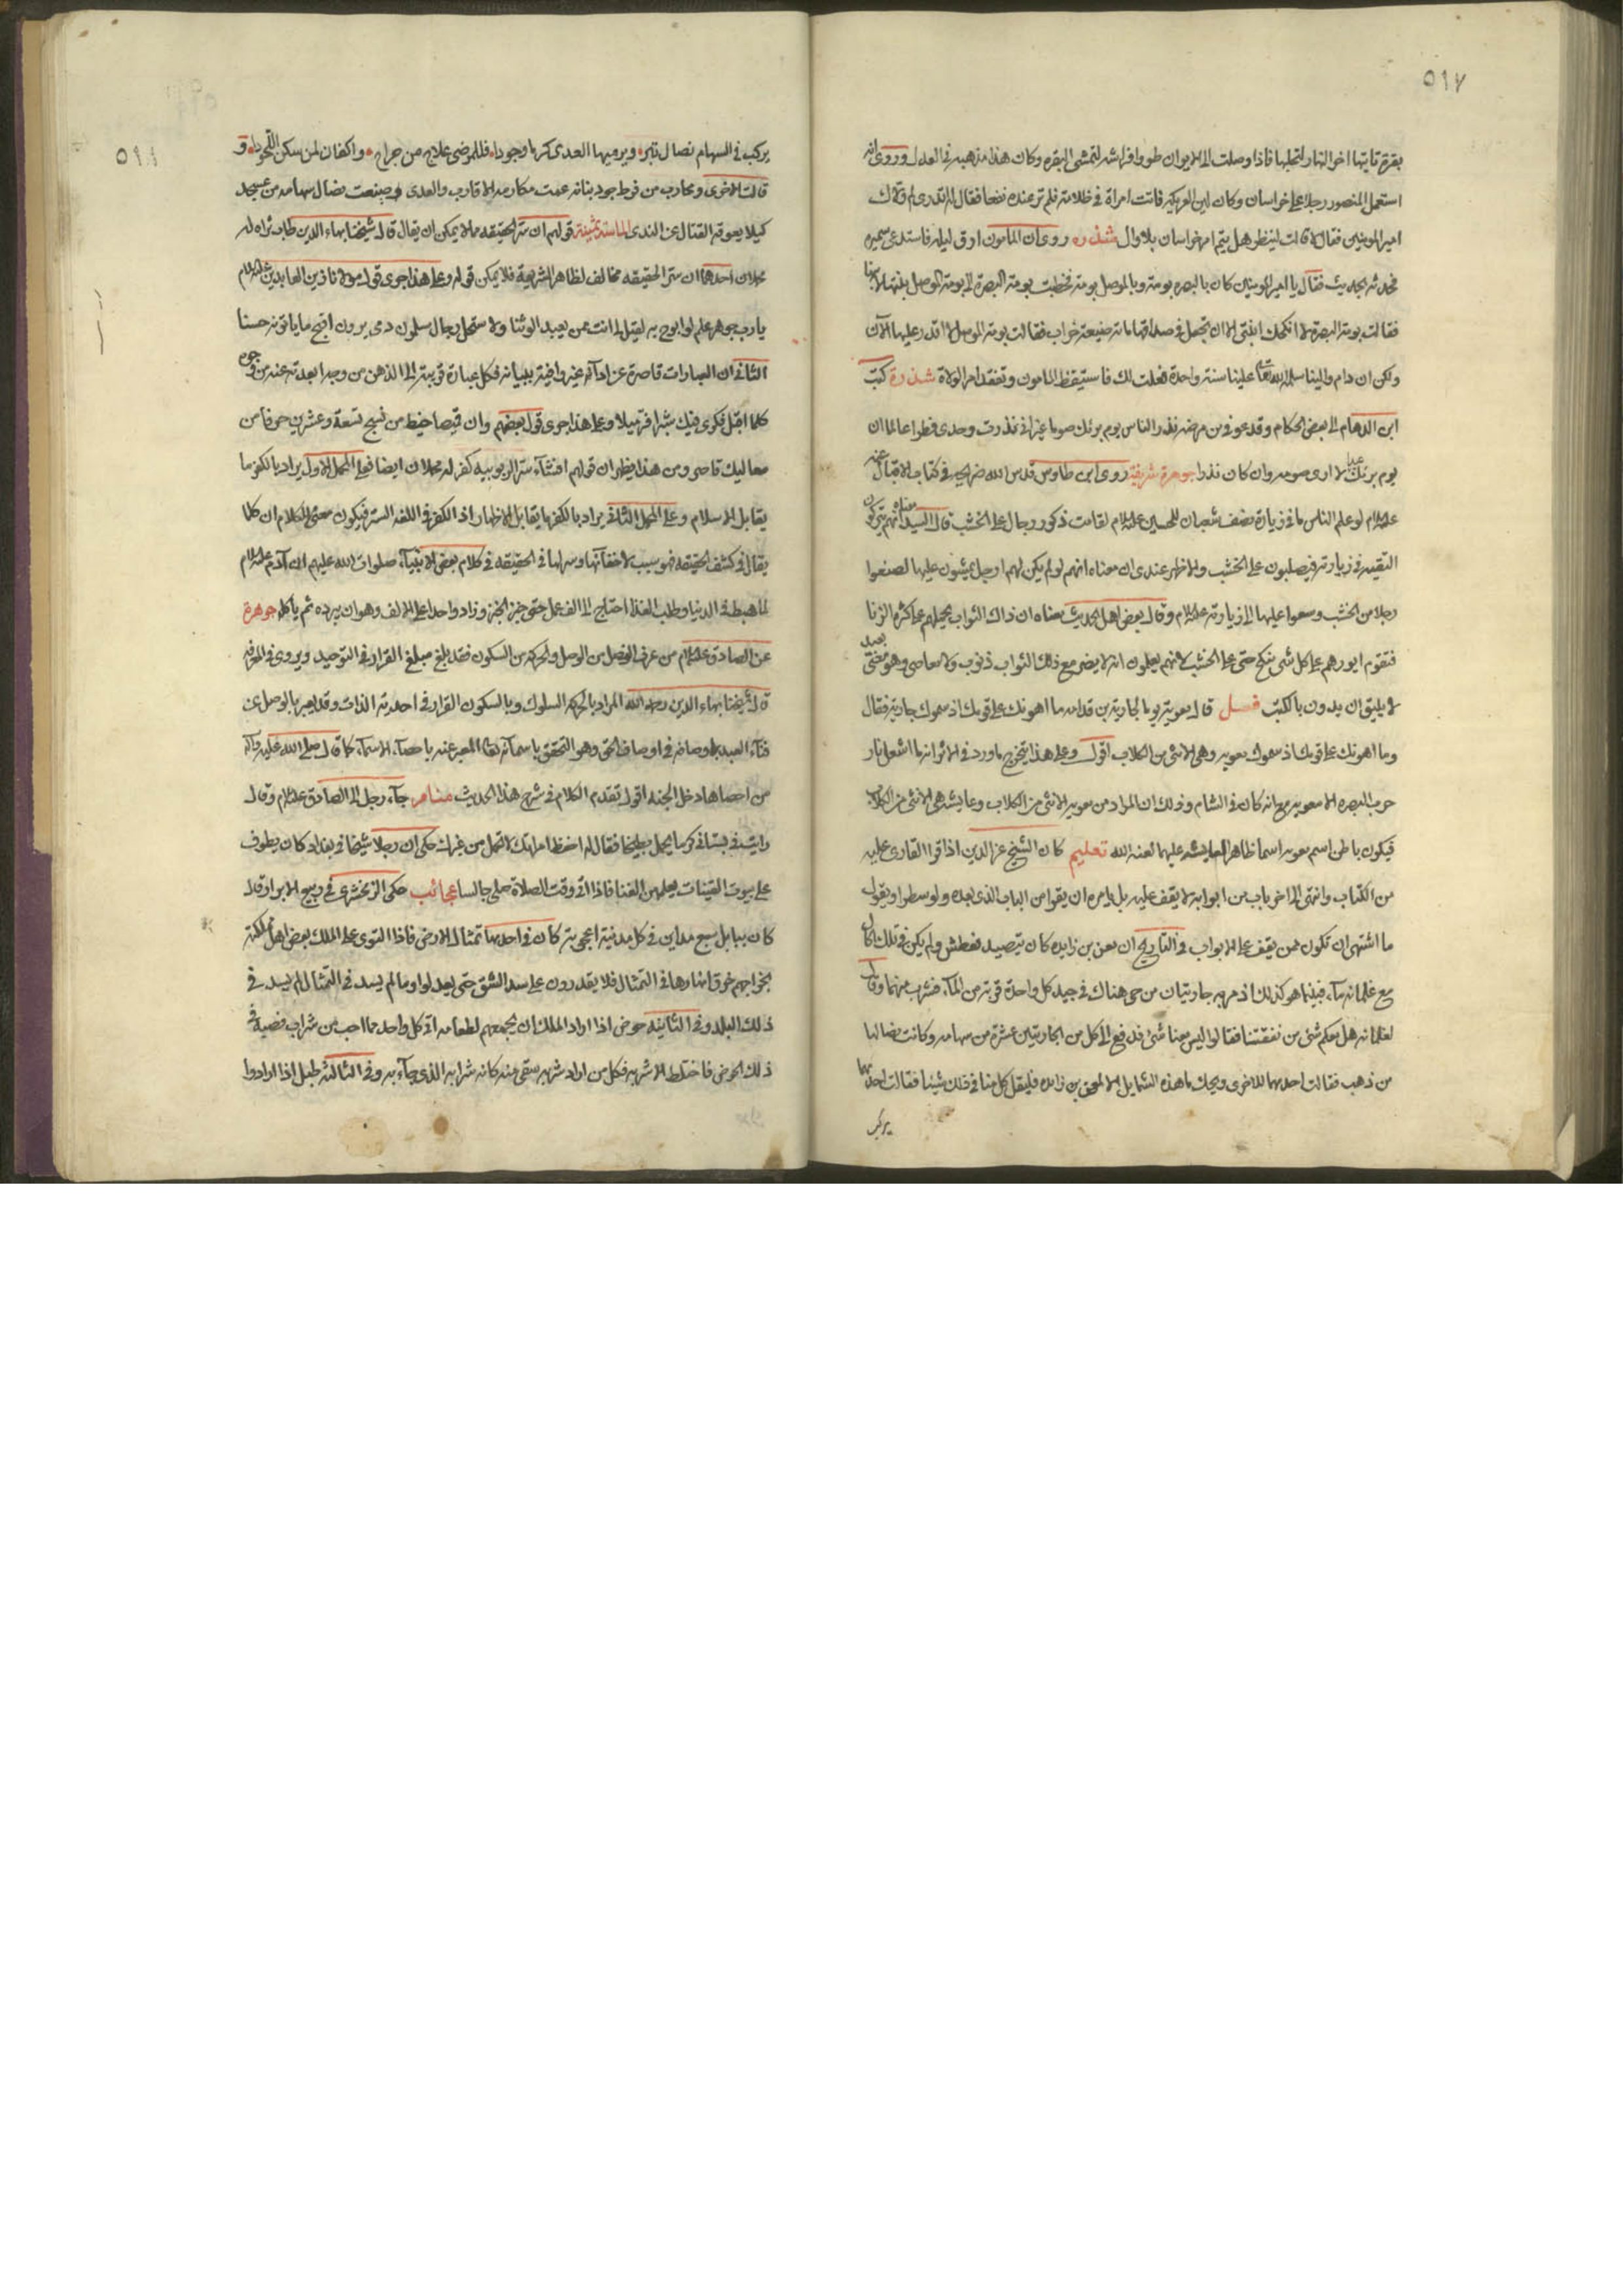 ٥٩٧
بقرة تاتيها اخر النهار لتحلبها فاذا وصلت الى الايوان طووا فراشه لتمشي البقره وكان هذا مذهبه في العدل وروى انه
استعمل المنصور رجلا على خراسان وكان لين العريكه فاتت امراة في ظلامة فلم تر عنده نفعا فقالت له اتدري لم ولاك
امير المومنين فقال لا قالت لينظر هل يتم امر خراسان بلا وال شذره روى ان المامون ارق ليله فاستدعى سميره
فحدثه بحديث فقال يا امير المومنين كان بالبصره بومة وبالموصل بومة فخطبت بومة البصرة الى بومة الموصل بنتها لابنها
فقالت بومة البصرة لا انكحك ابنتي الا ان تجعلي في صداقها ماته ضيعة خراب فقالت بومة الموصل لا اقدر عليها الآن
ولكن ان دام والينا سلمه الله تعالى علينا سنة واحدة فعلت لك فاستيقظ المامون وتفقد امر الولاة شذرة كتب
ابن الدهان الى بعض الحكام وقد عوفي من مرضه نذر الناس يوم برئك صوما غير اني نذرت وحدي فطرا عالما ان
يوم برئك عيد لا ارى صومه وان كان نذرا جوهرة شريفة روى ابن طاوس قدس الله ضريحه في كتاب الاقبال عنه
عليه السلام لو علم الناس ما في زيارة نصف شعبان للحسين عليه السلام لقامت ذكور رجال على الخشب قال السيد معناه انهم يتركون
التقيه في زيارته فيصلبون على الخشب والاظهر عندي ان معناه انهم لو لم يكن لهم ارجل يمشون عليها لصنعوا
رجلا من الخشب وسعوا عليها الى زيارته عليه السلام وقال بعض اهل الحديث معناه ان ذلك الثواب يحيلهم على كثره الزنا
فتقوم ايورهم على كل شي ينكح حتى على الخشب لانهم يعلمون انه لا يضر مع ذلك الثواب ذنوب ولا معاصي وهو معنى بعيد
لا يليق ان يدون بالكتب فصل قال معوية يوما لجارية بن قدامه ما اهونك على قومك اذ سموك جارية فقال
وما اهونك على قومك اذ سموك معويه وهي الانثى من الكلاب اقول وعلى هذا يتخرج ما ورد في الاثر انه ما اشعل نار
حرب البصره الا معويه مع انه كان في الشام وذلك ان المراد من معويه الانثى من الكلاب وعايشه هي الانثى من الكلاب
فيكون باطن اسم معويه اسما ظاهرا لعايشه عليهما لعنه الله تعليم كان الشيخ عز الدين اذا قرا القارى عليه
من الكتاب وانتهى الى اخر باب من ابوابه لا يقف عليه بل يامره ان يقرا من الباب الذي بعده ولو سطرا ويقول
ما اشتهي ان تكون ممن يقف على الابواب وفي التاريخ ان معن بن زايده كان يتصيد فعطش ولم يكن في تلك الحال
مع غلمانه ماء فبينما هو كذلك اذ مر به جاريتان من حي هناك في جيد كل واحدة قربة من الماء فشرب منهما وقال
لغلمانه هل معكم شئ من نفقتنا فقالوا ليس معنا شئ فدفع الى كل من الجاريتين عشرة من سهامه وكانت نصالها
من ذهب فقالت احديهما للاخرى ويحك ما هذه الشمايل الا لمعن بن زايده فليقل كل منا في ذلك شيئا فقالت احديهما
يركب
٥٩٨
يركب في السهام نصال تبر ويرميها العدى كرما وجودا فللمرضى علاج من جراح واكفان لمن سكن اللحودا و
قالت الاخرى ومحارب من فرط جود بنانه عمت مكارمه الاقارب والعدى وصيغت نصال سهامه من عسجد
كيلا يعوقه القتال عن الندى الماسة ثمينة قولهم ان ستر الحقيقه مما لا يمكن ان يقال قال شيخنا بهاء الدين طاب ثراه له
محملان احدهما ان ستر الحقيقه مخالف لظاهر الشريعة فلا يمكن قوله وعلى هذا جرى قول مولانا زين العابدين عليه السلام
يا رب جوهر علم لو ابوح به لقيل لي انت ممن يعبد الوثنا ولاستحل رجال مسلمون دمي يرون اقبح ما ياتونه حسنا
الثاني ان العبارات قاصرة عن ادائه غير وافية ببيانه فكل عبارة قربته الى الذهن من وجه ابعدته عنه من وجوه
كلما اقبل فكري فيك شبرا فر ميلا وعلى هذا جرى قول بعضهم وان قميصا خيط من نسج تسعة وعشرين حرفا من
معاليك قاصر ومن هذا يظهر ان قولهم افشاء ستر الربوبيه كفر له محملان ايضا فعلى المحمل الاول يراد بالكفر ما
يقابل الاسلام وعلى المحمل الثاني يراد بالكفر ما يقابل الاظهار اذ الكفر في اللغه الستر فيكون معنى الكلام ان كلما
يقال في كشف الحقيقه فهو سبب لاخفائها وسرها في الحقيقه في كلام بعض الانبياء صلوات الله عليهم ان آدم عليه السلام
لما هبط الى الدنيا وطلب الغذا احتاج الى الف عمل حتى خبز الخبز وزاد واحدا على الالف وهو ان يبرده ثم ياكله جوهرة
عن الصادق عليه السلام من عرف الفصل من الوصل والحركه من السكون فقد بلغ مبلغ القرار في التوحيد ويروى في المعرفه
قال شيخنا بهاء الدين رحمه الله المراد بالحركه السلوك وبالسكون القرار في احديه الذات وقد يعبر بالوصل عن
فناء العبد باوصافه في اوصاف الحق وهو التحقق باسمائه تعالى المعبر عنه باحصاء الاسماء كما قال صلى الله عليه وآله
من احصاها دخل الجنه اقول تقدم الكلام في شرح هذا الحديث منامر جاء رجل الى الصادق عليه السلام وقال
رايت في بستاني كرما يحمل بطيخا فقال له احفظ امراتك لا تحمل من غيرك حكى ان رجلا شيخا في بغداد كان يطوف
على بيوت القينات يعلمهن الغنا فاذا اتى وقت الصلاة صلى جالسا عجائب حكى الزمخشري في ربيع الابرار قال
كان ببابل سبع مداين في كل مدينة اعجوبة كان في احديها تمثال الارض فاذا التوى على الملك بعض اهل مملكته
بخراجهم خرق انهارها في التمثال فلا يقدرون على سد الشق حتى يعدلوا وما لم يسد في التمثال لم يسد في
ذلك البلد وفي الثانيه حوض اذا اراد الملك ان يجمعهم لطعامه اتى كل واحد بما احب من شراب فصبه في
ذلك الحوض فاختلط الاشربه فكل من اراد شربه سقي منه كانه شرابه الذي جاء به وفي الثالثه طبل اذا ارادوا